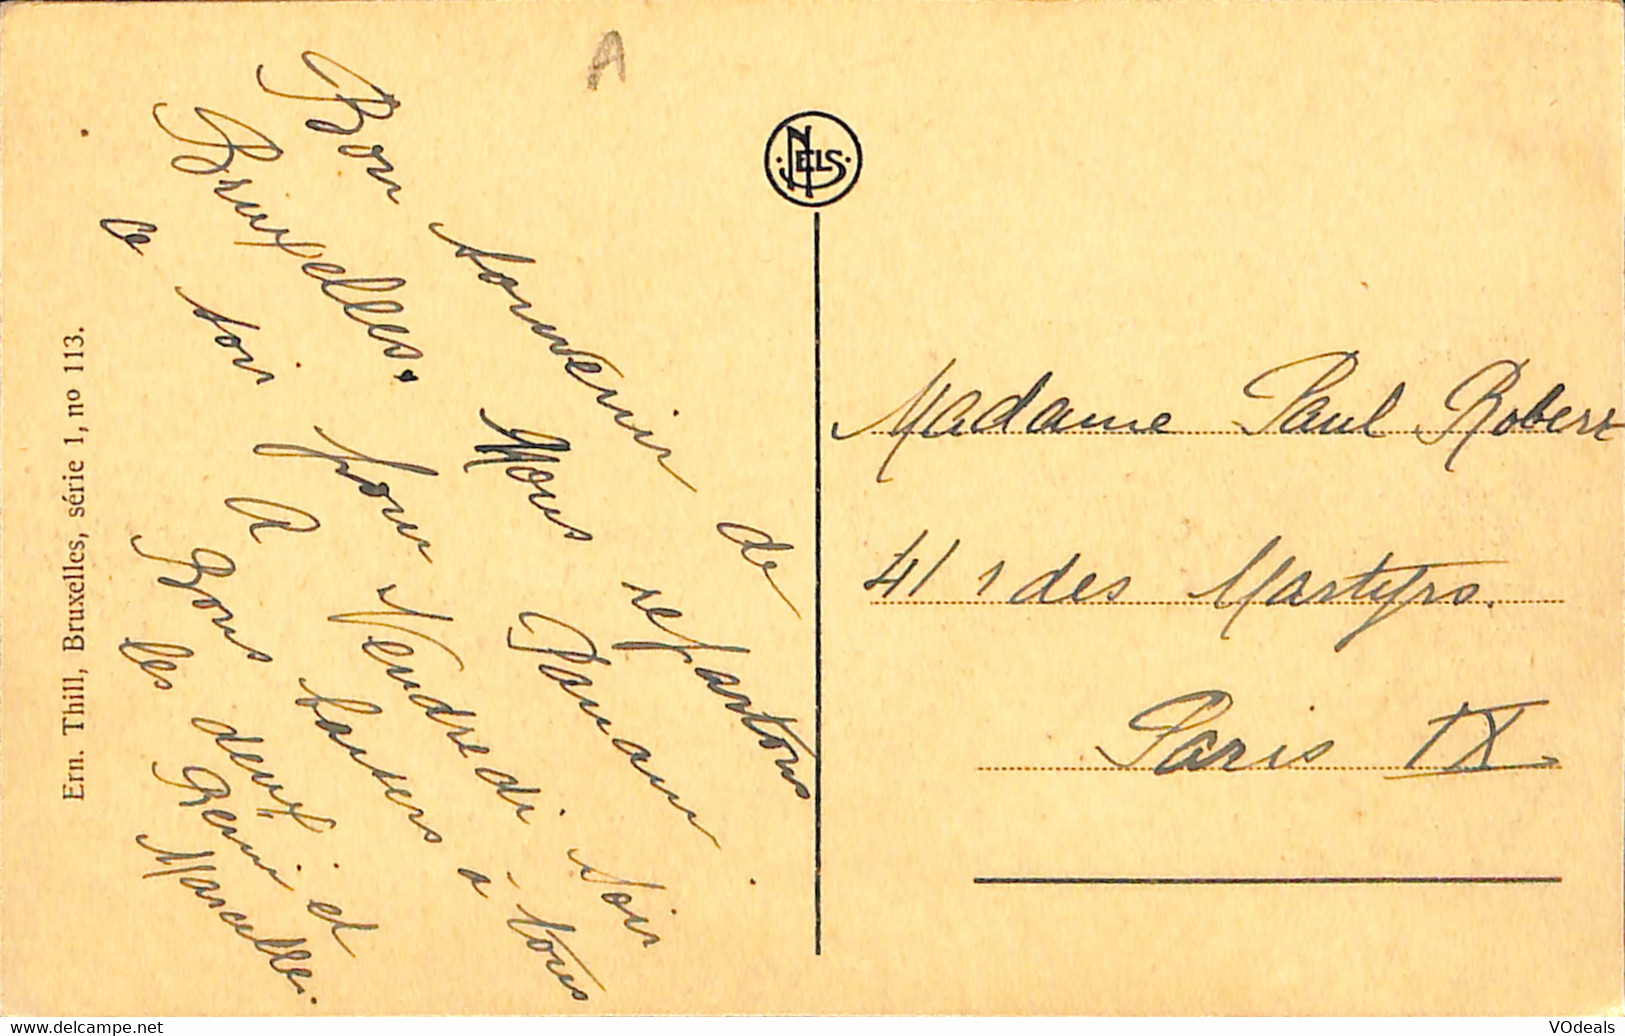 A
NELS
Bon souvenir de
Bruxelles. Nous repartons
ce soir pour Panam.
A Vendredi. Soir
Bons baisers à tous
les deux
Remi et
Marcelle.
Madame Paul Robert
41 r des Martyrs.
Paris IX
Ern. Thill, Bruxelles, série 1, nº 113.
www.delcampe.net
VOdeals